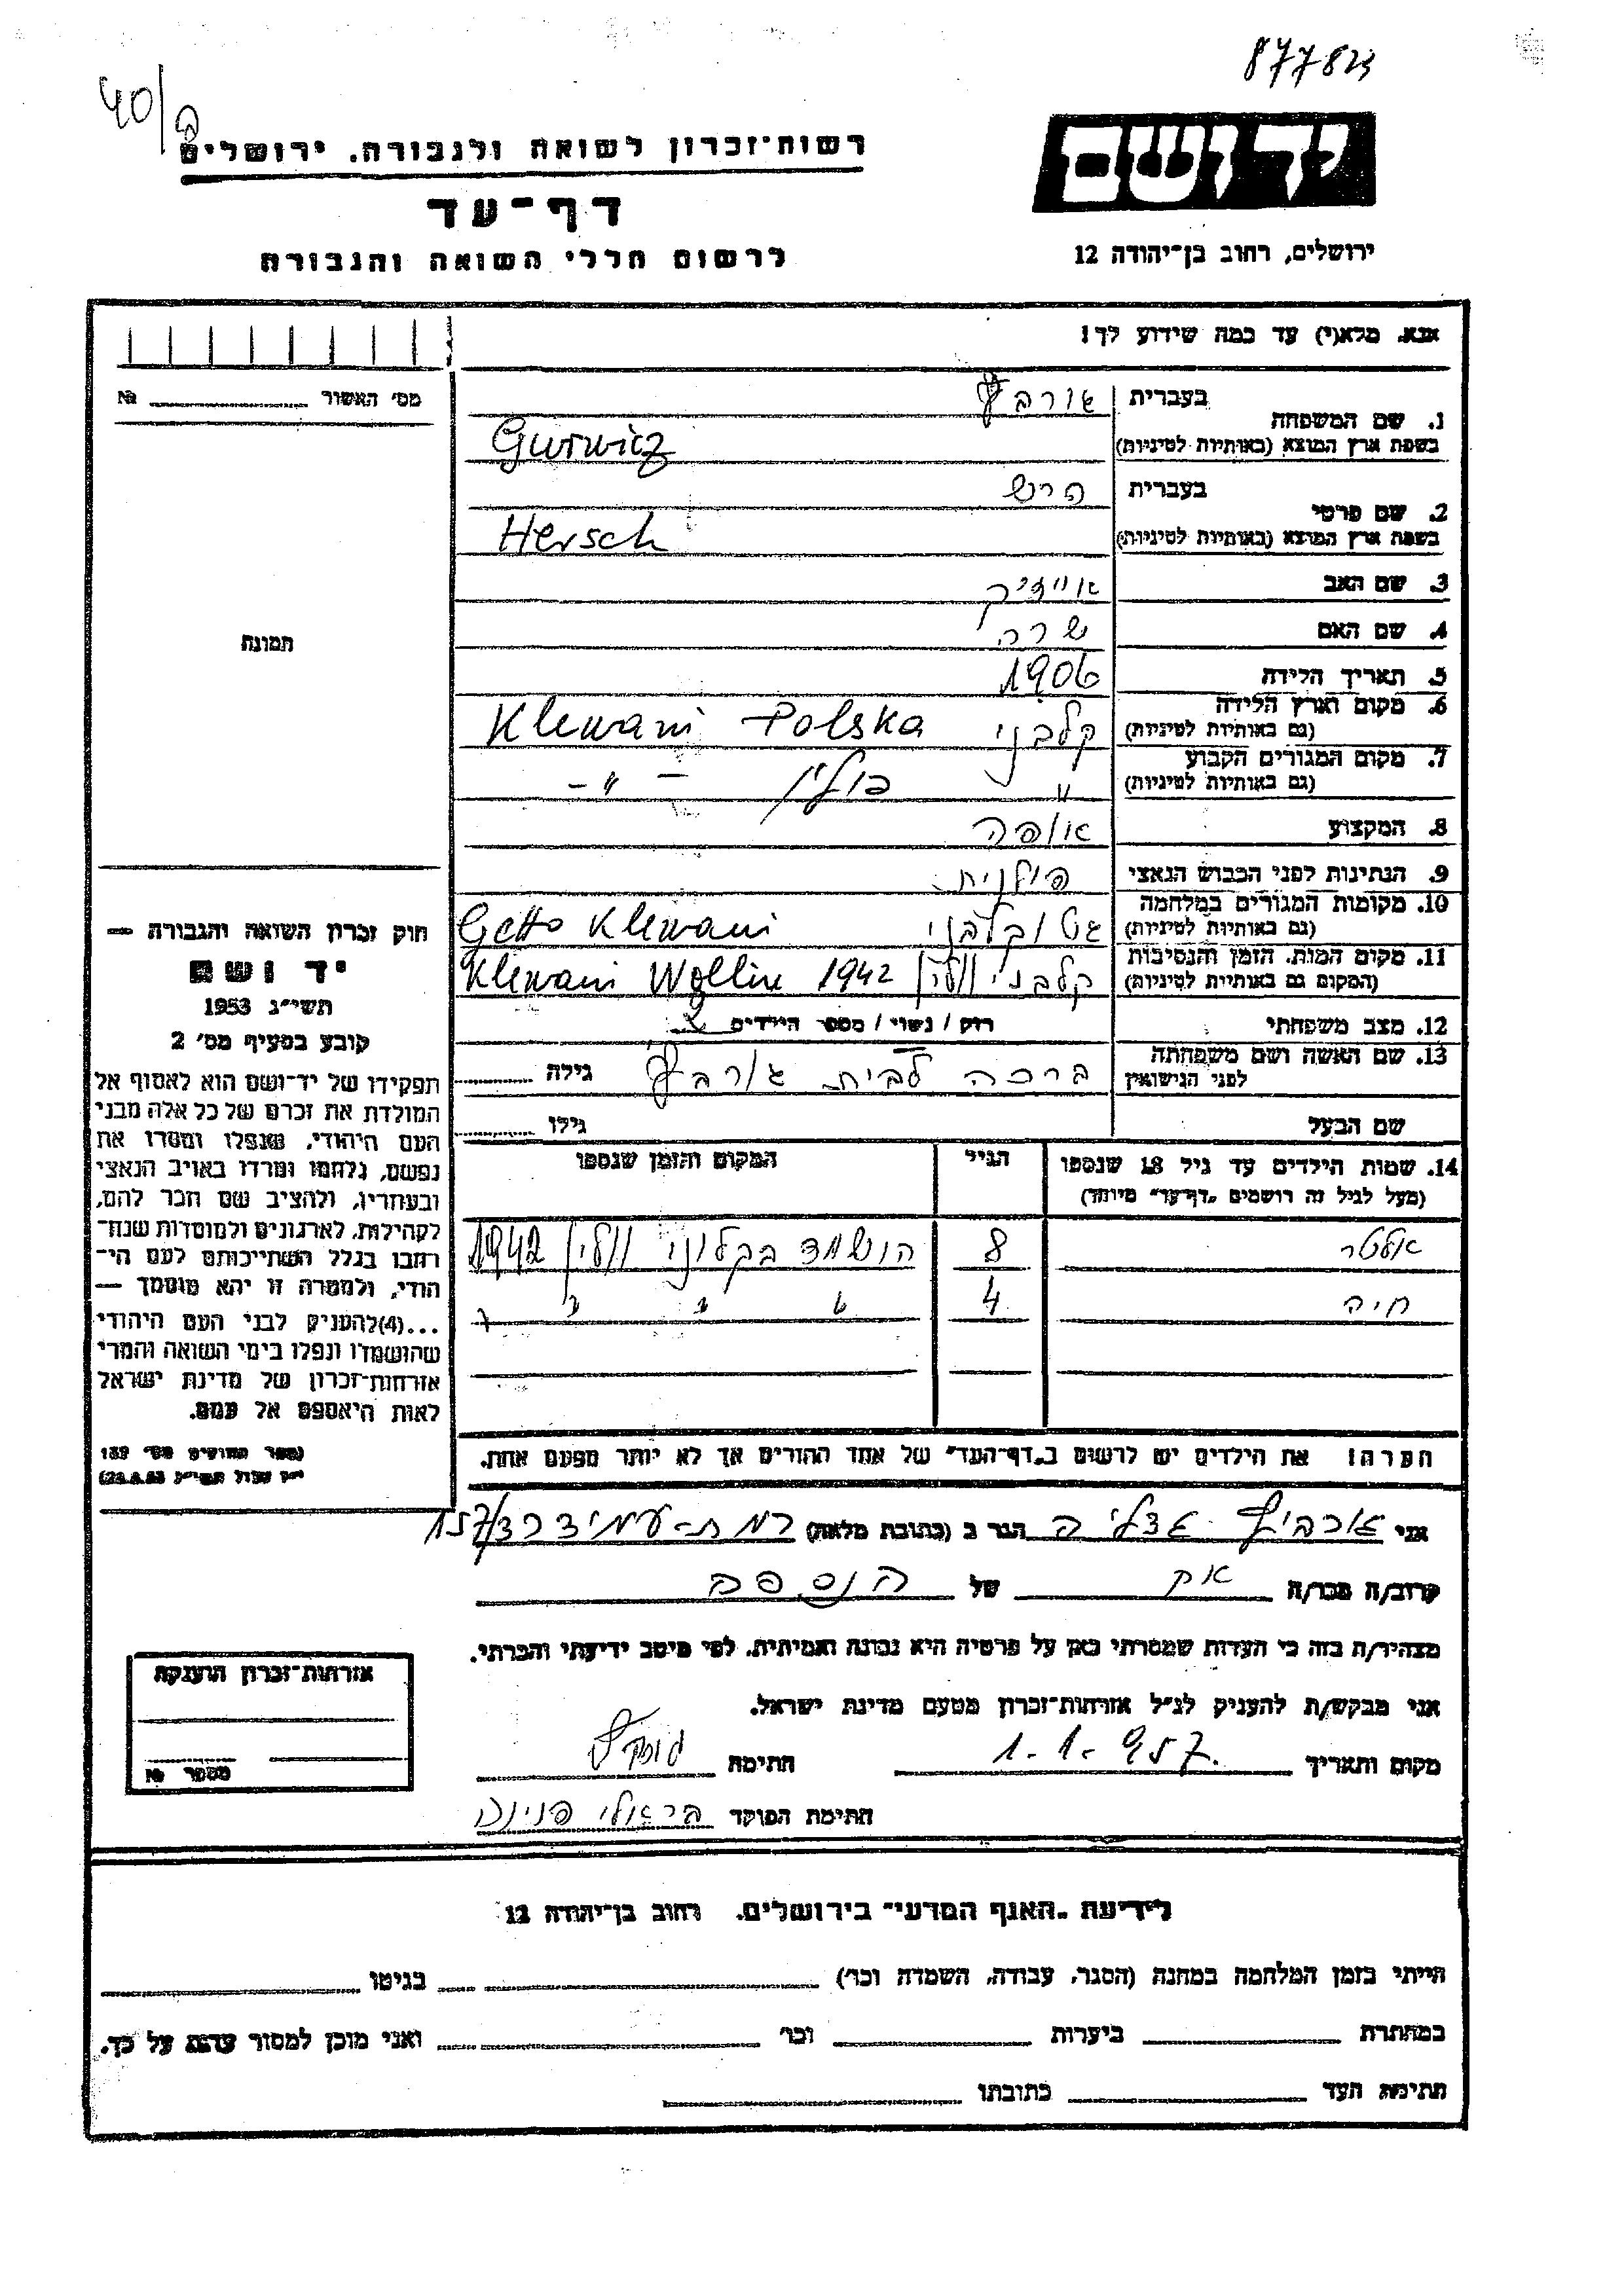 877823
40/
יד ושם
רשות־זכרון לשואה ולגבורה, ירושלים
דף־עד
ירושלים, רחוב בן־יהודה 12
לרשום חללי השואה והגבורה
אנא, מלא(י) עד כמה שידוע לך!
מס' האשור № 
1. שם המשפחה
בעברית גורביץ
בשפת ארץ המוצא (באותיות לטיניות) Gurwicz
2. שם פרטי
בעברית הרש
בשפת ארץ המוצא (באותיות לטיניות) Hersch
3. שם האב אייזיק
4. שם האם שרה
5. תאריך הלידה 1906
6. מקום וארץ הלידה קלבני Klewani Polska
(גם באותיות לטיניות)
7. מקום המגורים הקבוע
(גם באותיות לטיניות) " פולין – " –
8. המקצוע אופה
9. הנתינות לפני הכבוש הנאצי פולנית
10. מקומות המגורים במלחמה
(גם באותיות לטיניות) Getto Klewani
11. מקום המות, הזמן והנסיבות
(המקום גם באותיות לטיניות) קלבני וולין Klewani Wollin 1942
12. מצב משפחתי רווק / נשוי / מספר הילדים 2
13. שם האשה ושם משפחתה
לפני הנישואין ברכה לבית גורביץ גילה
שם הבעל גילו
14. שמות הילדים עד גיל 18 שנספו הגיל המקום והזמן שנספו
(מעל לגיל זה רושמים "דף־עד" מיוחד)
אלטר 8 הושמד בקלוני וולין 1942
חיה 4 " " " "
הערה! את הילדים יש לרשום ב"דף־העד" של אחד ההורים אך לא יותר מפעם אחת.
תמונה
חוק זכרון השואה והגבורה —
יד ושם
תשי"ג 1953
קובע בסעיף מס' 2
תפקידו של יד־ושם הוא לאסוף אל
המולדת את זכרם של כל אלה מבני
העם היהודי, שנפלו ומסרו את
נפשם, נלחמו ומרדו באויב הנאצי
ובעוזריו, ולהציב שם וזכר להם,
לקהילות, לארגונים ולמוסדות שנח־
רבו בגלל השתייכותם לעם הי־
הודי, ולמטרה זו יהא מוסמך —
...(4)להעניק לבני העם היהודי
שהושמדו ונפלו בימי השואה והמרי
אזרחות־זכרון של מדינת ישראל
לאות היאספם אל עמם.
(ספר החוקים מס' 132
י"ז אלול תשי"ג 28.8.53)
אני הגר ב (כתובת מלאה) רמת־עמידר 157/
קרוב/ה מכר/ה אח של הנספה
מצהיר/ה בזה כי העדות שמסרתי כאן על פרטיה היא נכונה ואמיתית, לפי מיטב ידיעתי והכרתי.
אני מבקש/ת להעניק לנ"ל אזרחות־זכרון מטעם מדינת ישראל.
מקום ותאריך 1.1.957 חתימה
חתימת הפוקד
אזרחות־זכרון הוענקה
מספר №
לידיעת "האגף המדעי" בירושלים, רחוב בן־יהודה 12
הייתי בזמן המלחמה במחנה (הסגר, עבודה, השמדה וכו') בגיטו
במחתרת ביערות וכו' ואני מוכן למסור עדות על כך.
חתימת העד כתובתו